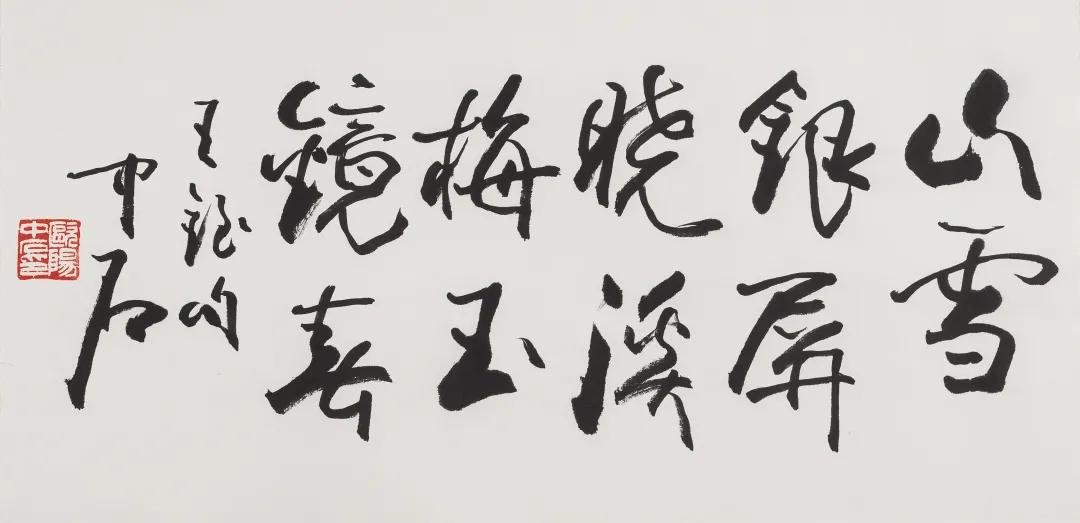 山雪
銀屏
晓溪
梅玉
鏡春
王鎡句
中石
歐陽
中石